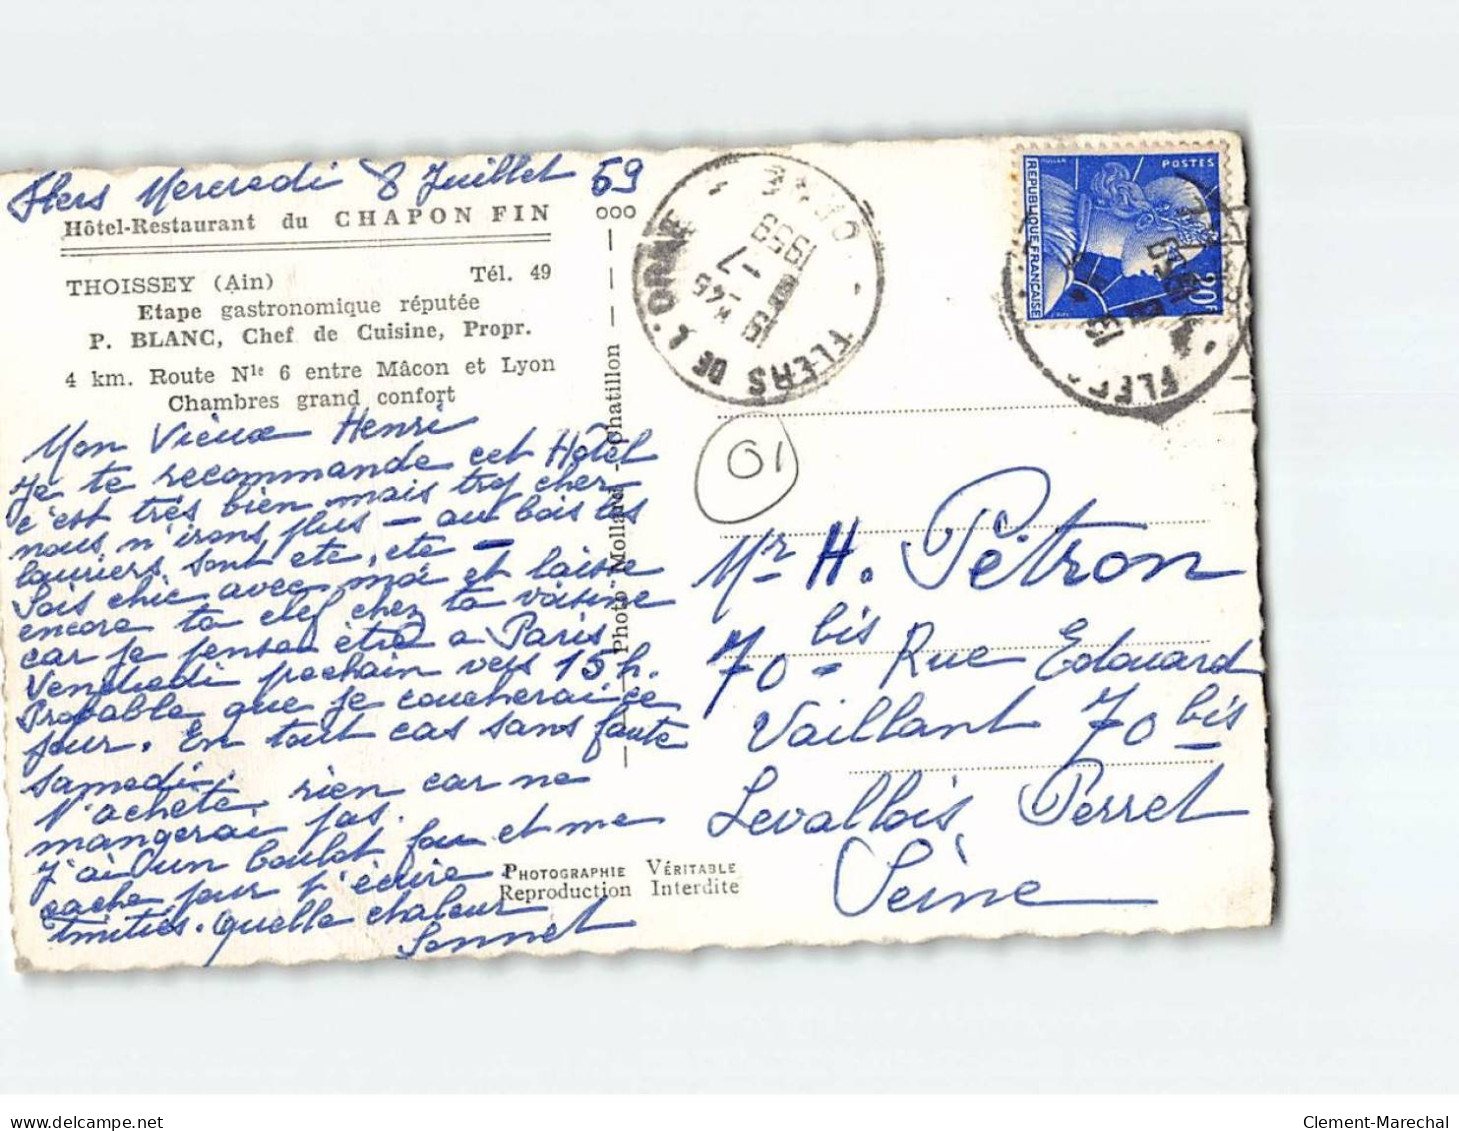 Flers Mercredi 8 Juillet 59
Hôtel-Restaurant du CHAPON FIN
THOISSEY (Ain) Tél. 49
Etape gastronomique réputée
P. BLANC, Chef de Cuisine, Propr.
4 km. Route Nle 6 entre Mâcon et Lyon
Chambres grand confort
Mon Vieux Henri
Je te recommande cet Hôtel
c'est très bien mais trop cher
nous n'irons plus — au bois les
lauriers sont etc, etc —
Sois chic avec moi et laisse
encore ta clef chez ta voisine
car je pense être a Paris
Vendredi prochain vers 15 h.
Probable que je coucherai ce
jour. En tout cas sans faute
samedi.
N'achète rien car ne
mangerai pas.
J'ai un boulot fou et me
cache pour t'écrire
Amitiés. Quelle chaleur
Photo Mollard - Chatillon
PHOTOGRAPHIE VÉRITABLE
Reproduction Interdite
FLERS DE L'ORNE
ORNE
1959
POSTES
REPUBLIQUE FRANÇAISE
20F
FLERS
01
Mr H. Pétron
70 bis Rue Edouard
Vaillant 70 bis
Levallois Perret
Seine
Clement-Marechal
delcampe.net